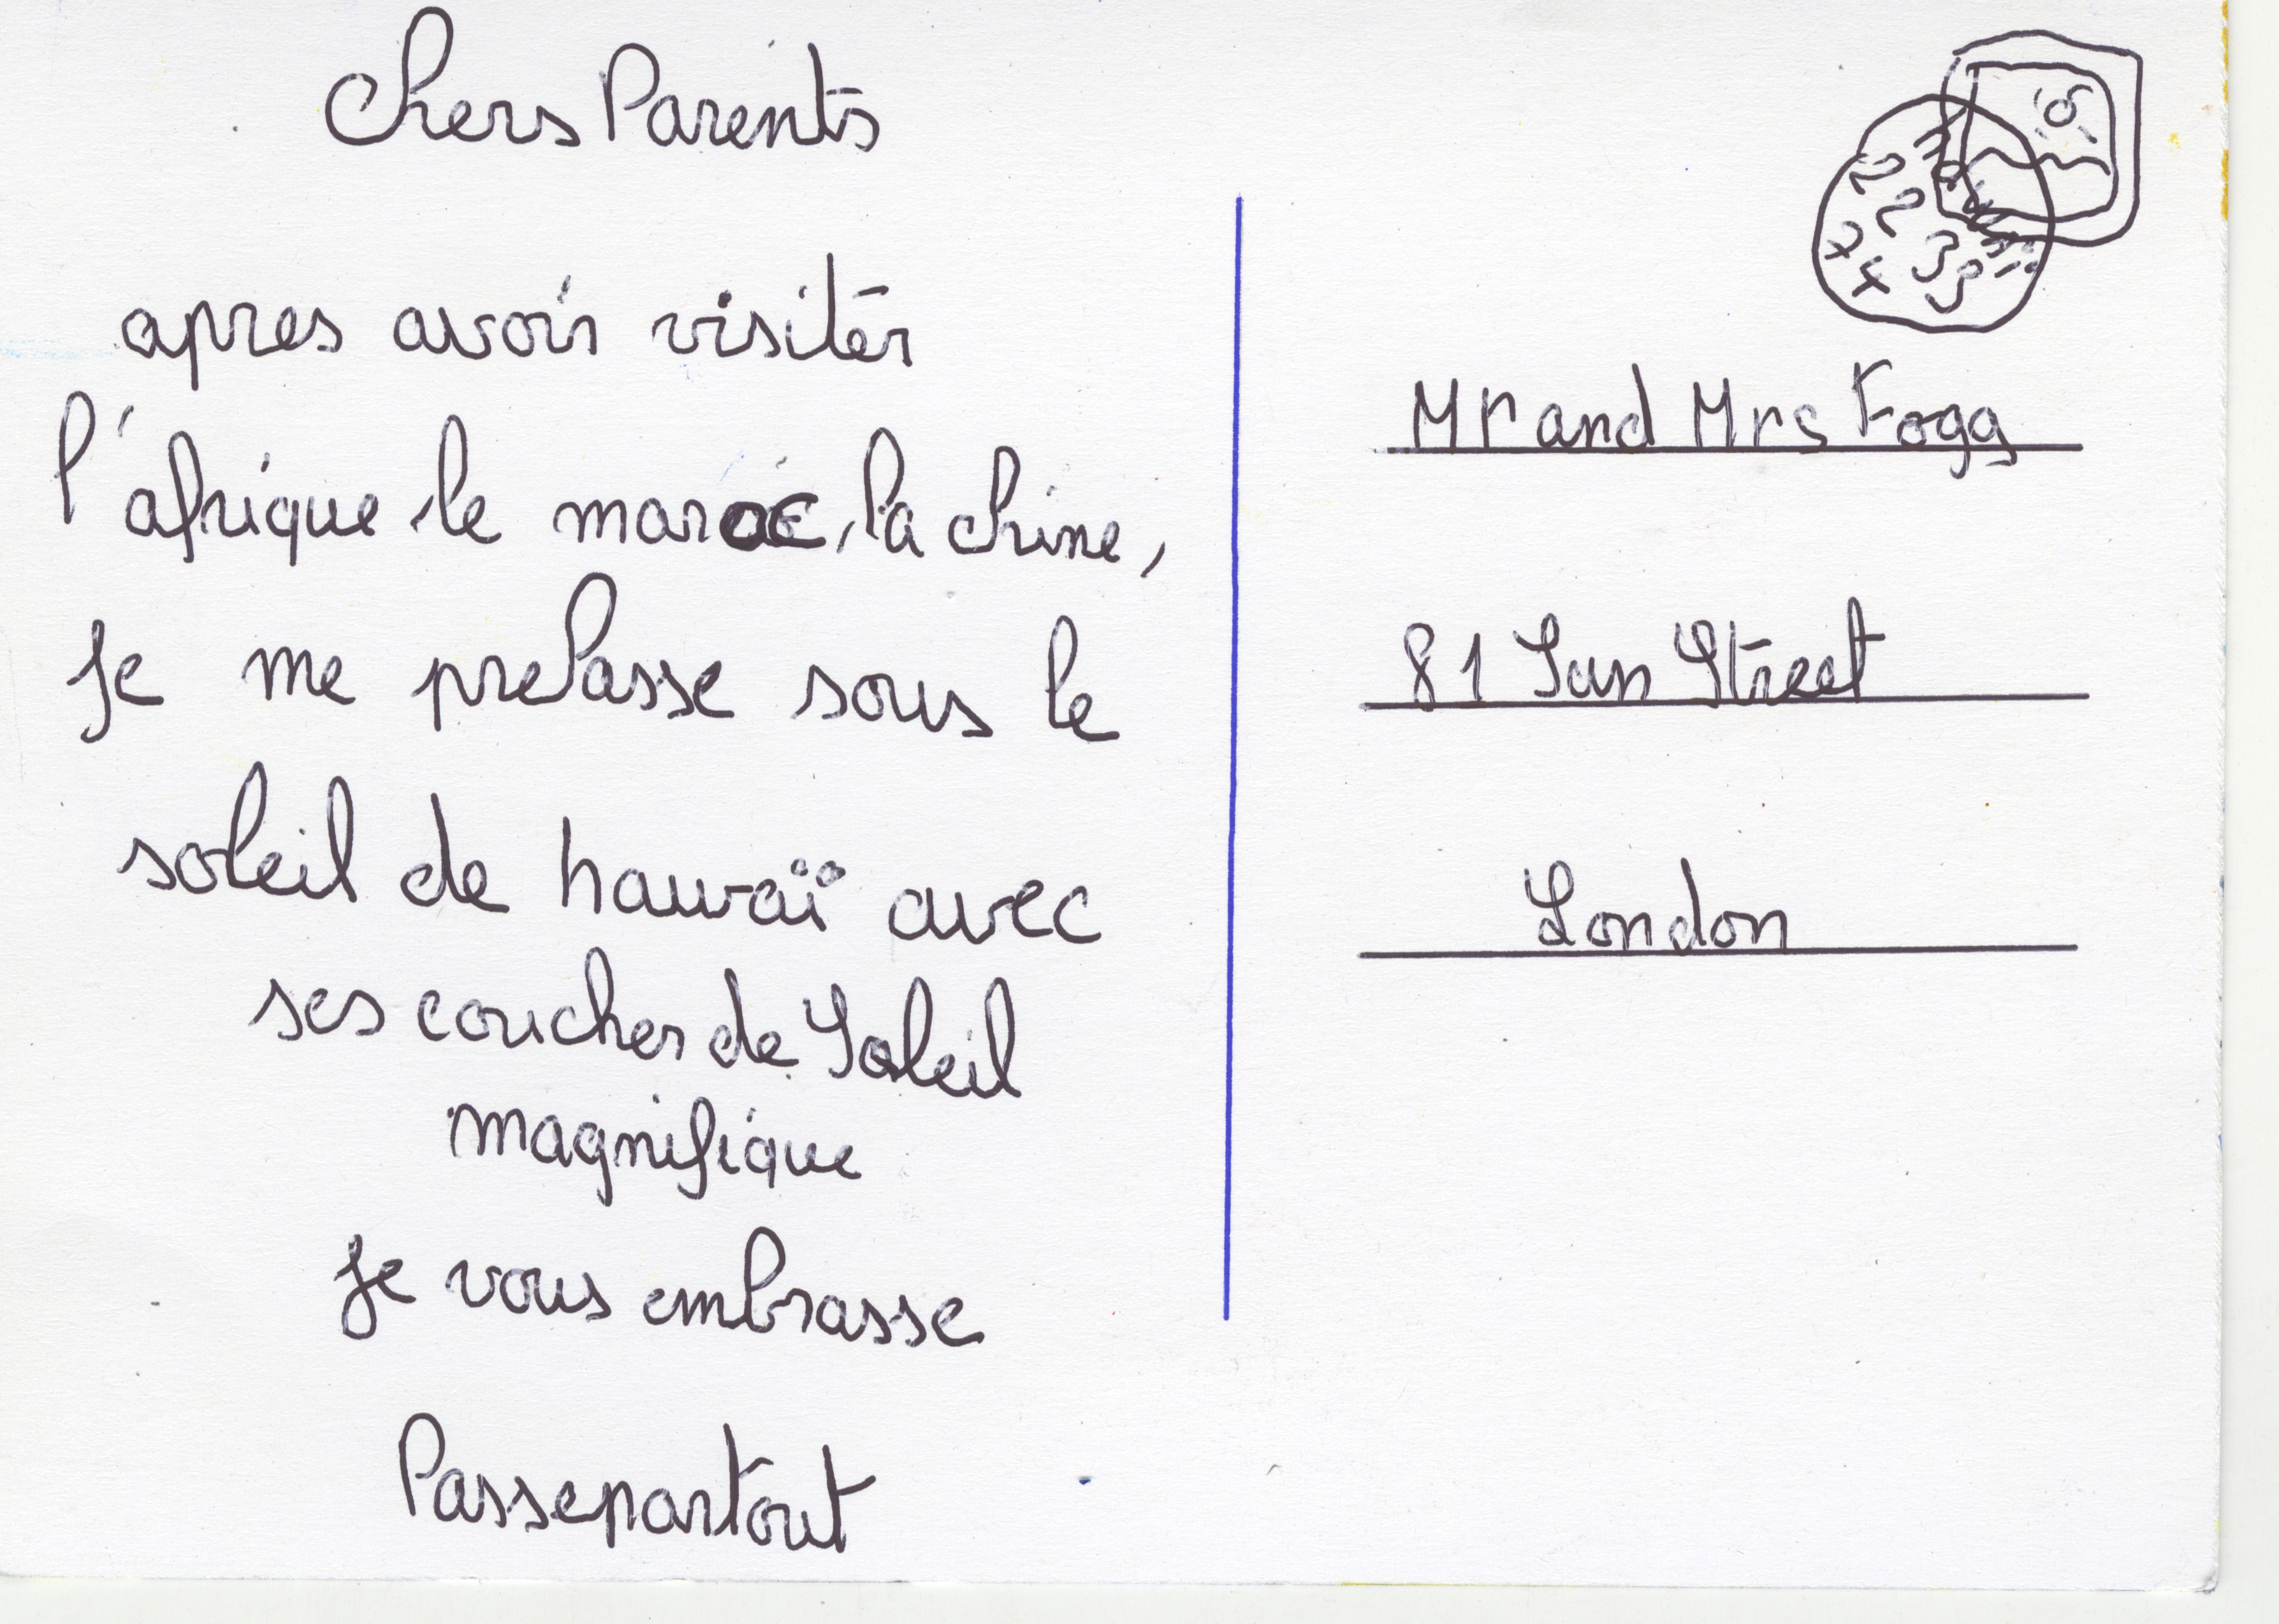 Chers Parents
apres avoir visiter
l'afrique le maroc, la chine,
Je me prelasse sous le
soleil de hawaï avec
ses coucher de Soleil
magnifique
Je vous embrasse
Passepartout
Mr and Mrs Fogg
81 Sun Street
London